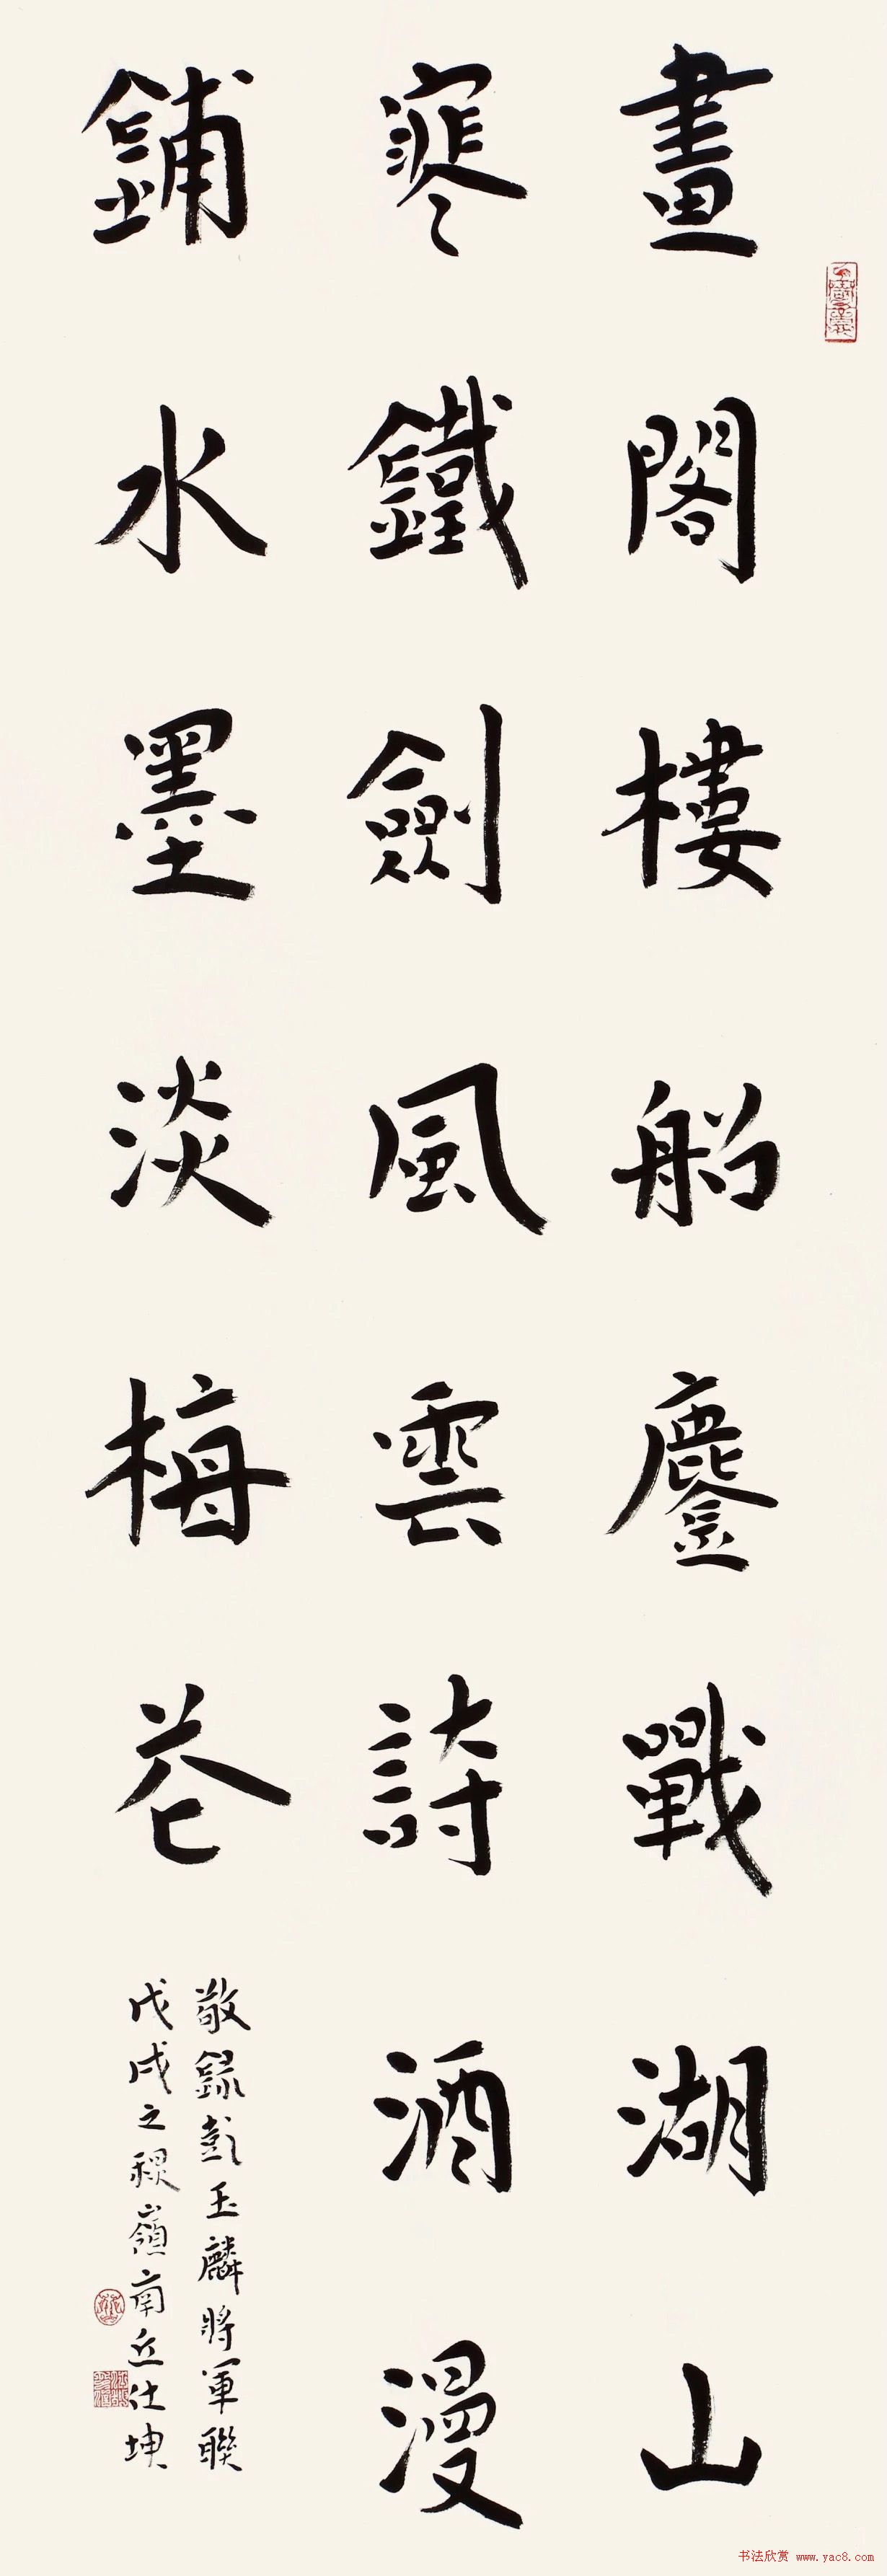 畫閣樓船鏖戰湖山
寒鐵劍風雲詩酒漫
鋪水墨淡梅花
敬錄彭玉麟將軍聯
戊戌之 嶺南丘仕坤
书法欣赏 www.yac8.com